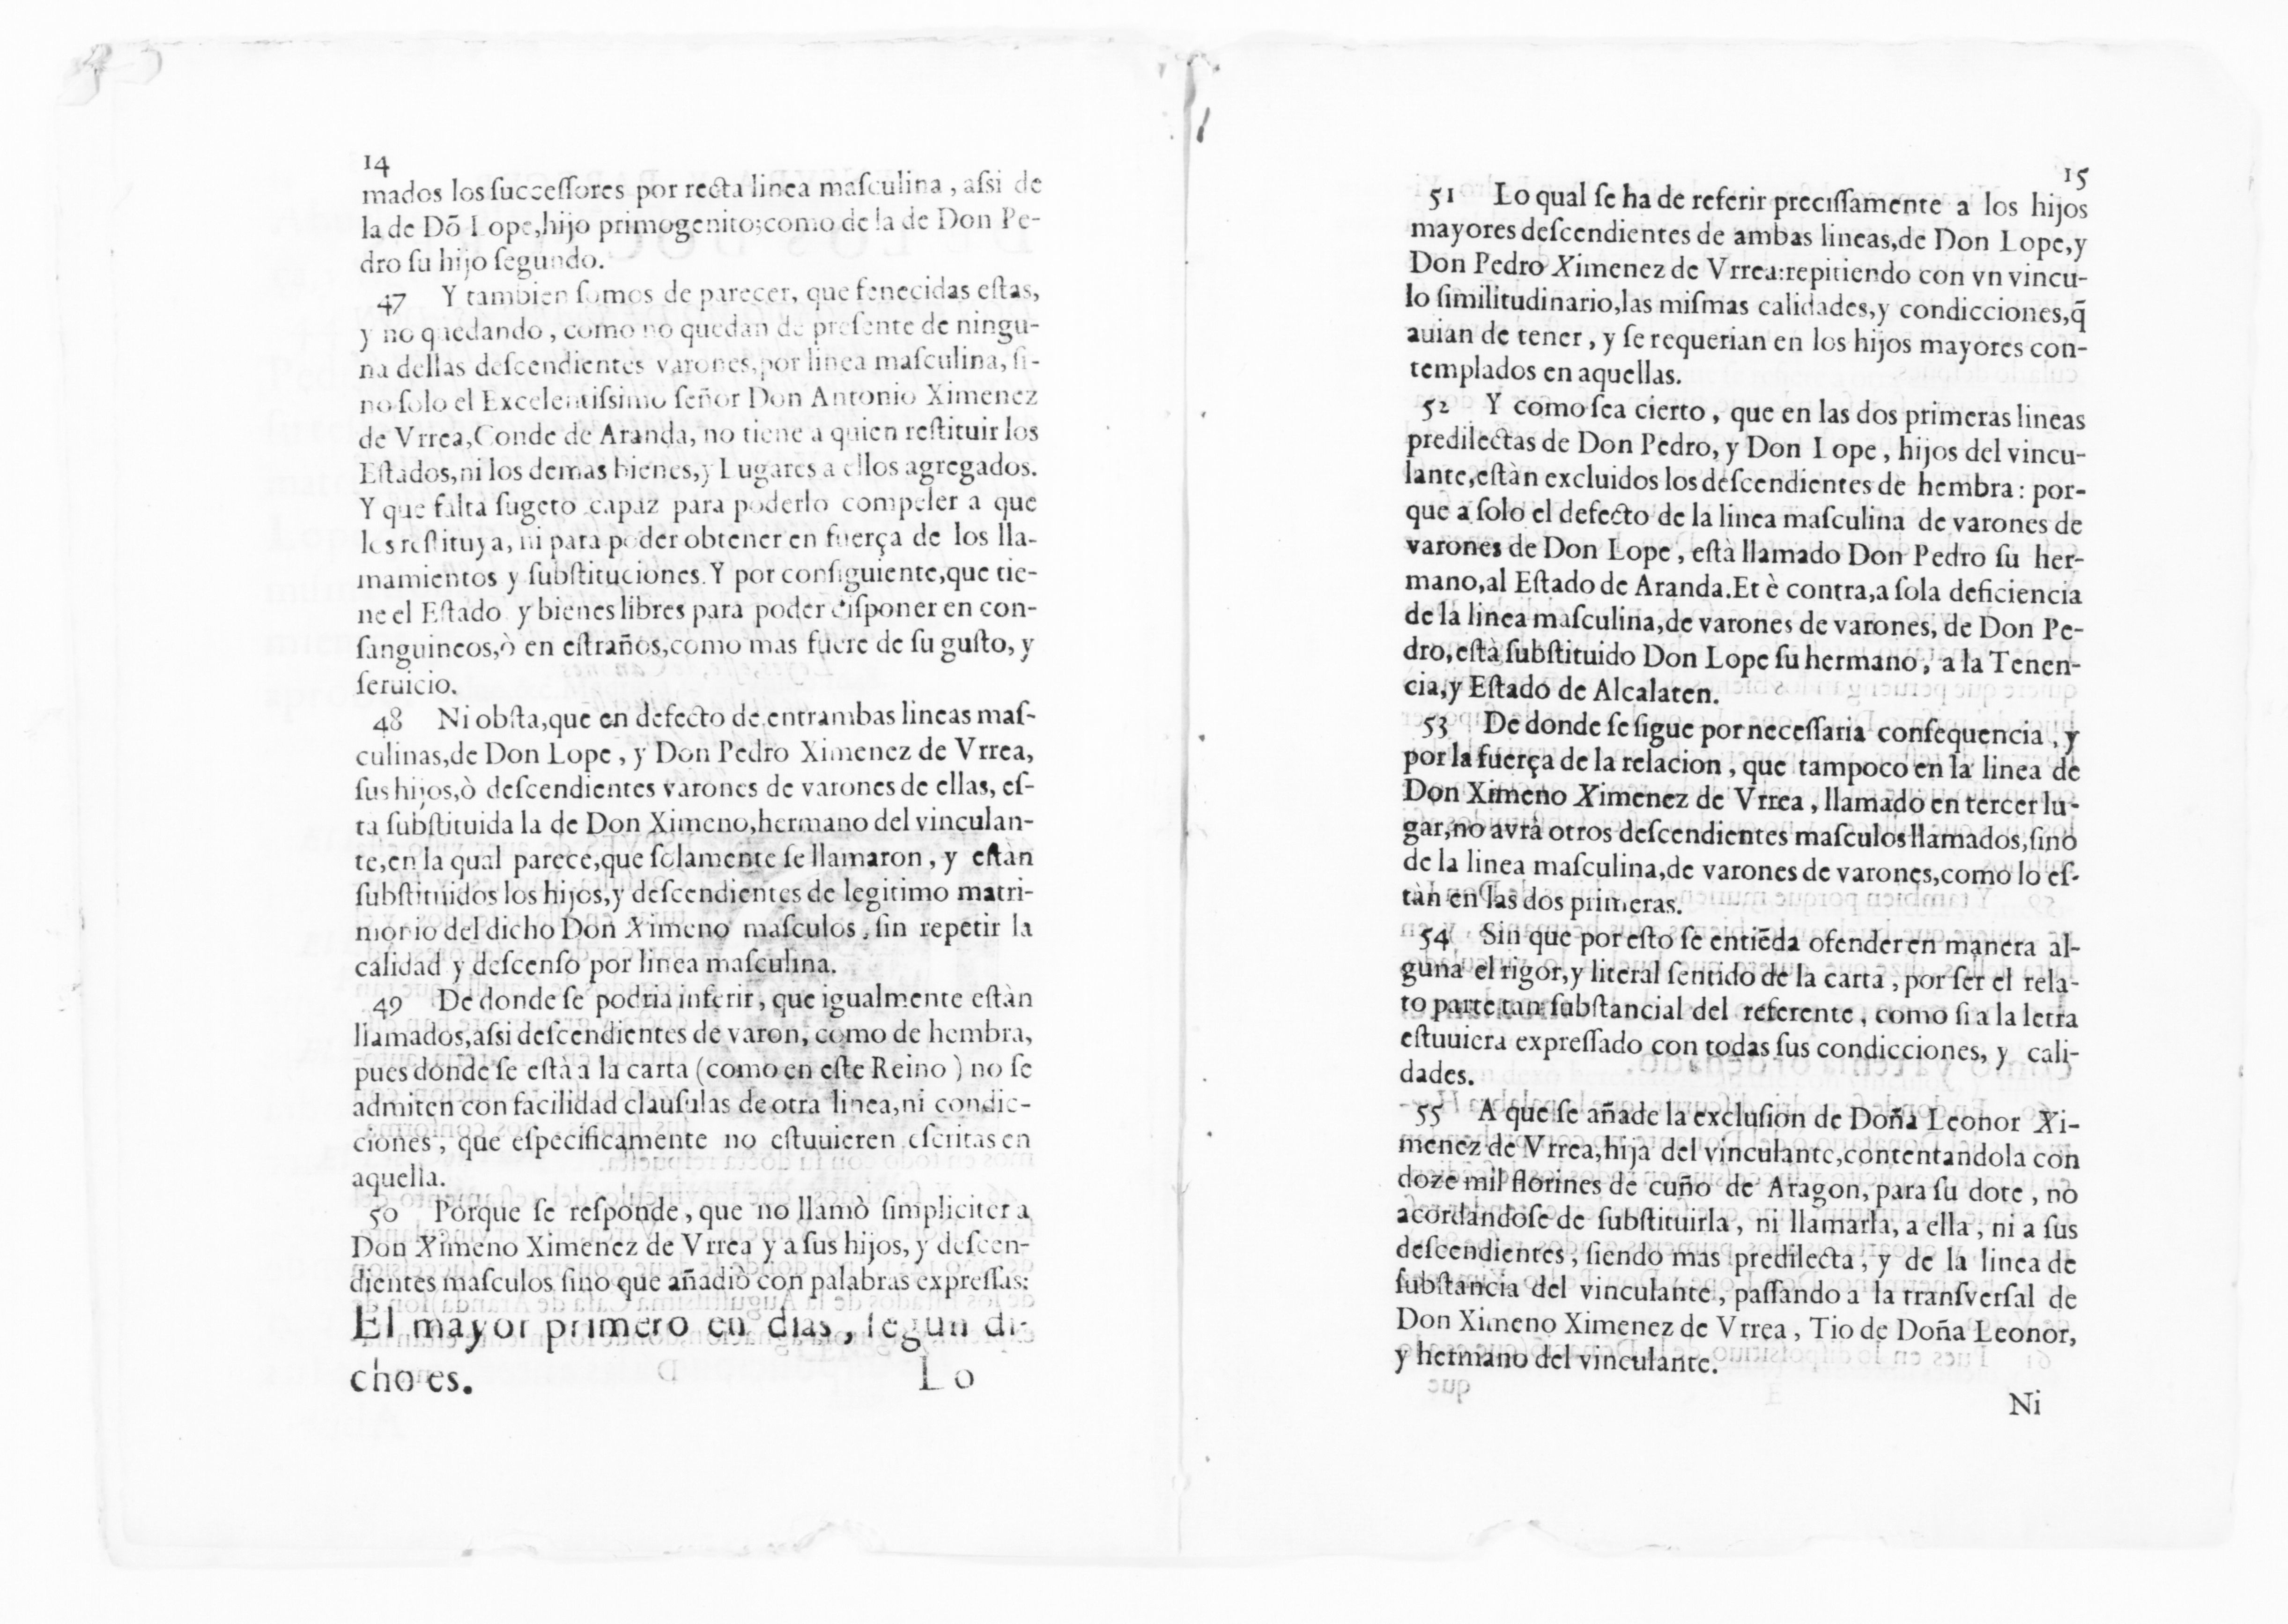 14
mados los ſucceſſores por recta linea maſculina, aſsi de
la de Dõ Lope,hijo primogenito;como de la de Don Pe-
dro ſu hijo ſegundo.
47 Y tambien ſomos de parecer, que fenecidas eſtas,
y no quedando, como no quedan de preſente de ningu-
na dellas deſcendientes varones,por linea maſculina, ſi-
no ſolo el Excelentiſsimo ſeñor Don Antonio Ximenez
de Vrrea,Conde de Aranda, no tiene a quien reſtituir los
Eſtados,ni los demas bienes,y Lugares a ellos agregados.
Y que falta ſugeto capaz para poderlo compeler a que
les reſtituya, ni para poder obtener en fuerça de los lla-
mamientos y ſubſtituciones. Y por conſiguiente,que tie-
ne el Eſtado y bienes libres para poder diſponer en con-
ſanguineos,ò en eſtraños,como mas fuere de ſu guſto, y
ſeruicio.
48 Ni obſta,que en defecto de entrambas lineas maſ-
culinas,de Don Lope, y Don Pedro Ximenez de Vrrea,
ſus hijos,ò deſcendientes varones de varones de ellas, eſ-
ta ſubſtituida la de Don Ximeno,hermano del vinculan-
te,en la qual parece,que ſolamente ſe llamaron, y eſtàn
ſubſtituidos los hijos,y deſcendientes de legitimo matri-
monio del dicho Don Ximeno maſculos, ſin repetir la
calidad y deſcenſo por linea maſculina.
49 De donde ſe podria inferir, que igualmente eſtàn
llamados,aſsi deſcendientes de varon, como de hembra,
pues donde ſe eſtà a la carta (como en eſte Reino) no ſe
admiten con facilidad clauſulas de otra linea,ni condic-
ciones, que eſpecificamente no eſtuuieren eſcritas en
aquella.
50 Porque ſe reſponde, que no llamò ſimpliciter a
Don Ximeno Ximenez de Vrrea y a ſus hijos, y deſcen-
dientes maſculos ſino que añadiò con palabras expreſſas:
El mayor primero en dias, ſegun di-
cho es.
Lo
15
51 Lo qual ſe ha de referir preciſſamente a los hijos
mayores deſcendientes de ambas lineas,de Don Lope,y
Don Pedro Ximenez de Vrrea:repitiendo con vn vincu-
lo ſimilitudinario,las miſmas calidades,y condicciones,q̃
auian de tener, y ſe requerian en los hijos mayores con-
templados en aquellas.
52 Y como ſea cierto, que en las dos primeras lineas
predilectas de Don Pedro, y Don Lope, hijos del vincu-
lante,eſtàn excluidos los deſcendientes de hembra: por-
que a ſolo el defecto de la linea maſculina de varones de
varones de Don Lope, eſtà llamado Don Pedro ſu her-
mano,al Eſtado de Aranda.Et è contra,a ſola deficiencia
de la linea maſculina,de varones de varones, de Don Pe-
dro,eſtà ſubſtituido Don Lope ſu hermano, a la Tenen-
cia,y Eſtado de Alcalaten.
53 De donde ſe ſigue por neceſſaria conſequencia, y
por la fuerça de la relacion, que tampoco en la linea de
Don Ximeno Ximenez de Vrrea, llamado en tercer lu-
gar,no avrà otros deſcendientes maſculos llamados,ſino
de la linea maſculina,de varones de varones,como lo eſ-
tàn en las dos primeras.
54 Sin que por eſto ſe entiẽda ofender en manera al-
guna el rigor,y literal ſentido de la carta, por ſer el rela-
to parte tan ſubſtancial del referente, como ſi a la letra
eſtuuiera expreſſado con todas ſus condicciones, y cali-
dades.
55 A que ſe añade la excluſion de Doña Leonor Xi-
menez de Vrrea,hija del vinculante,contentandola con
doze mil florines de cuño de Aragon, para ſu dote, no
acordandoſe de ſubſtituirla, ni llamarla, a ella, ni a ſus
deſcendientes, ſiendo mas predilecta, y de la linea de
ſubſtancia del vinculante, paſſando a la tranſverſal de
Don Ximeno Ximenez de Vrrea, Tio de Doña Leonor,
y hermano del vinculante.
Ni